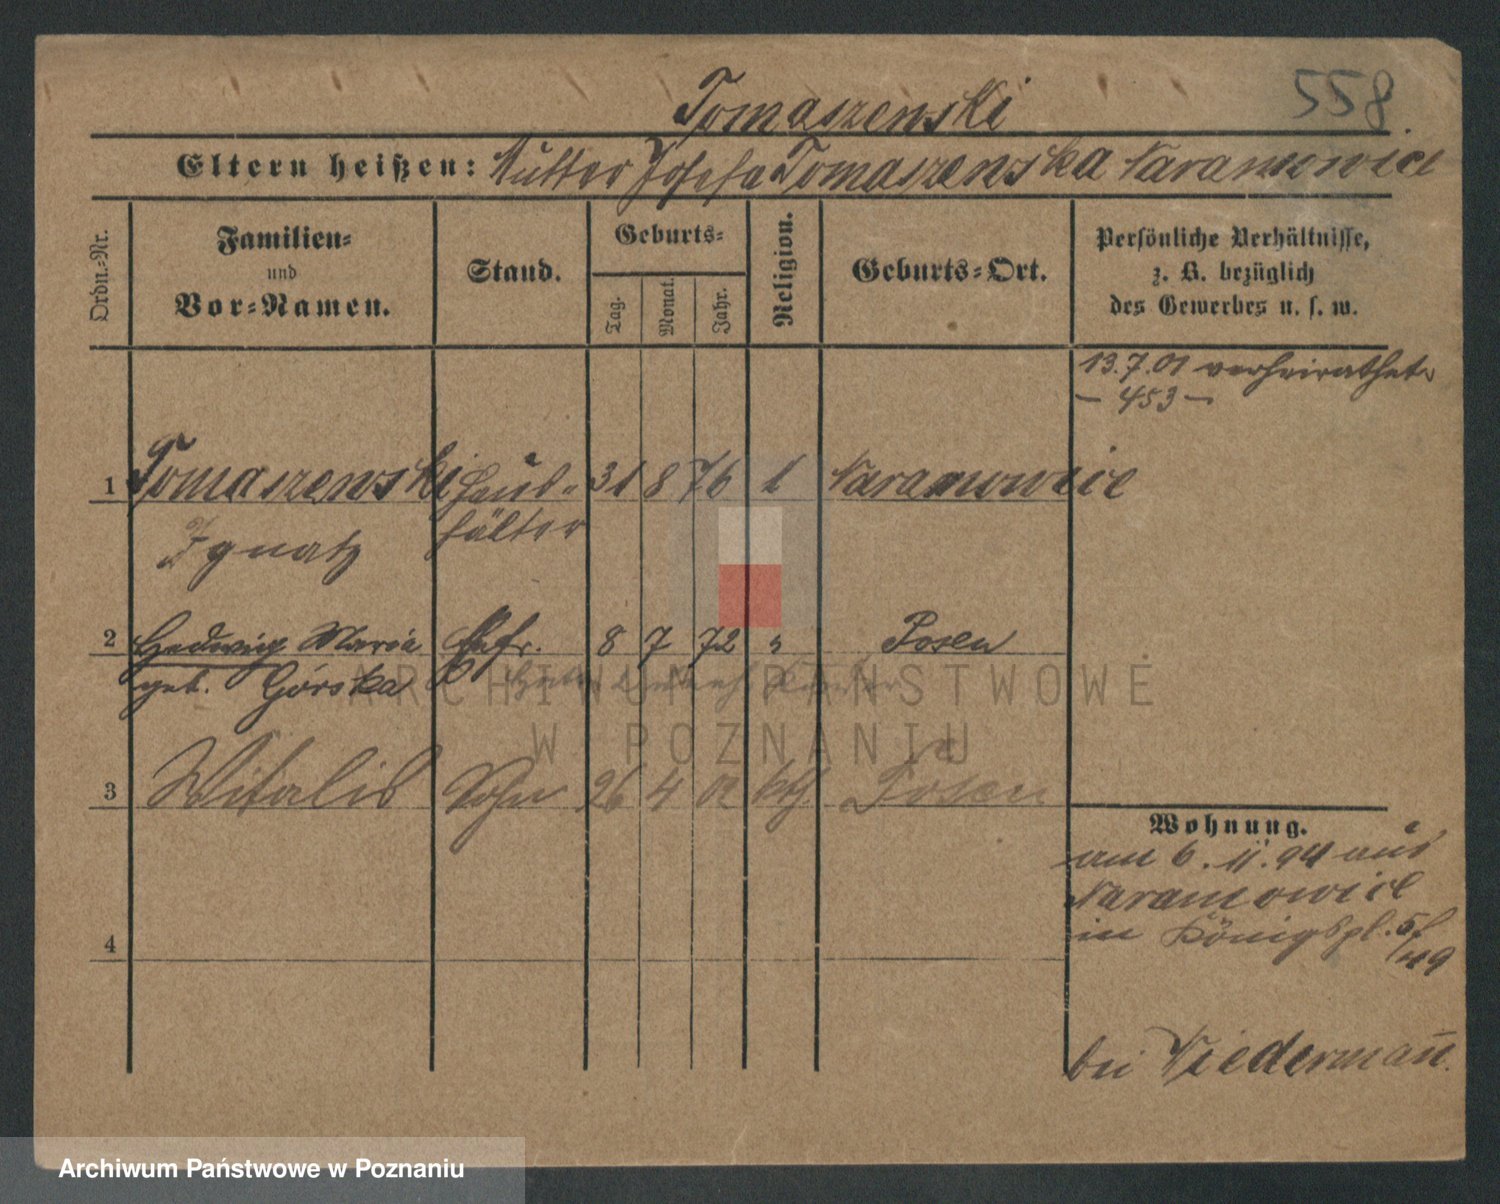 558.
Tomaszewski
Eltern heißen: Mutter Josefa Tomaszewska Naramowice
Ordn.-Nr.
Familien-
und
Vor-Namen.
Stand.
Geburts-
Tag.
Monat.
Jahr.
Religion.
Geburts-Ort.
Persönliche Verhältnisse,
z. B. bezüglich
des Gewerbes u. s. w.
13.7.01 verheirathet
- 453 -
1 Tomaszewski Haus- 31 8 76 1 Naramowice
Ignatz hälter
2 Hedwig Maria Ehefr. 8 7 72 " Posen
geb. Górska
3 Witalis Sohn 26 4 02 kth. Posen
4
Wohnung.
am 6. 11. 94 aus
Naramowice
in Königspl. 5
bei Niedermañ.
ARCHIWUM PAŃSTWOWE
W POZNANIU
Archiwum Państwowe w Poznaniu